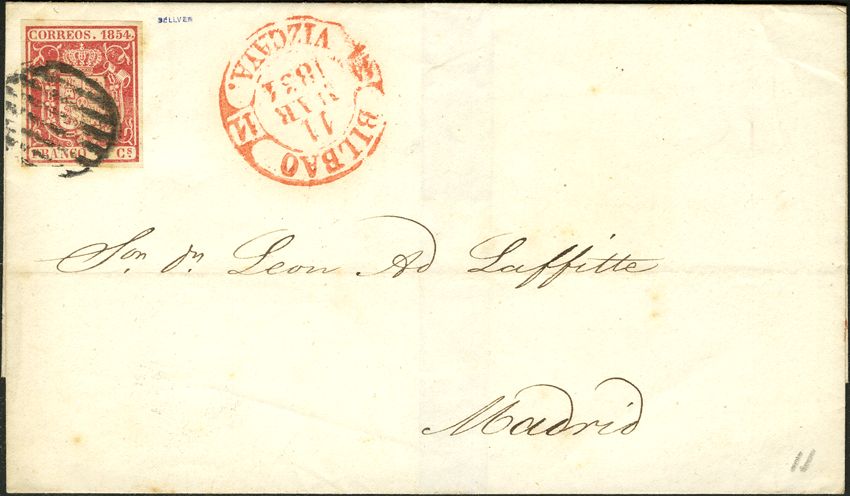 CORREOS. 1854.
FRANCO Cs
BELLVER
BILBAO
14
11
MAR
1854
VIZCAYA.
Sor. dn. Leon Ad Laffitte
Madrid